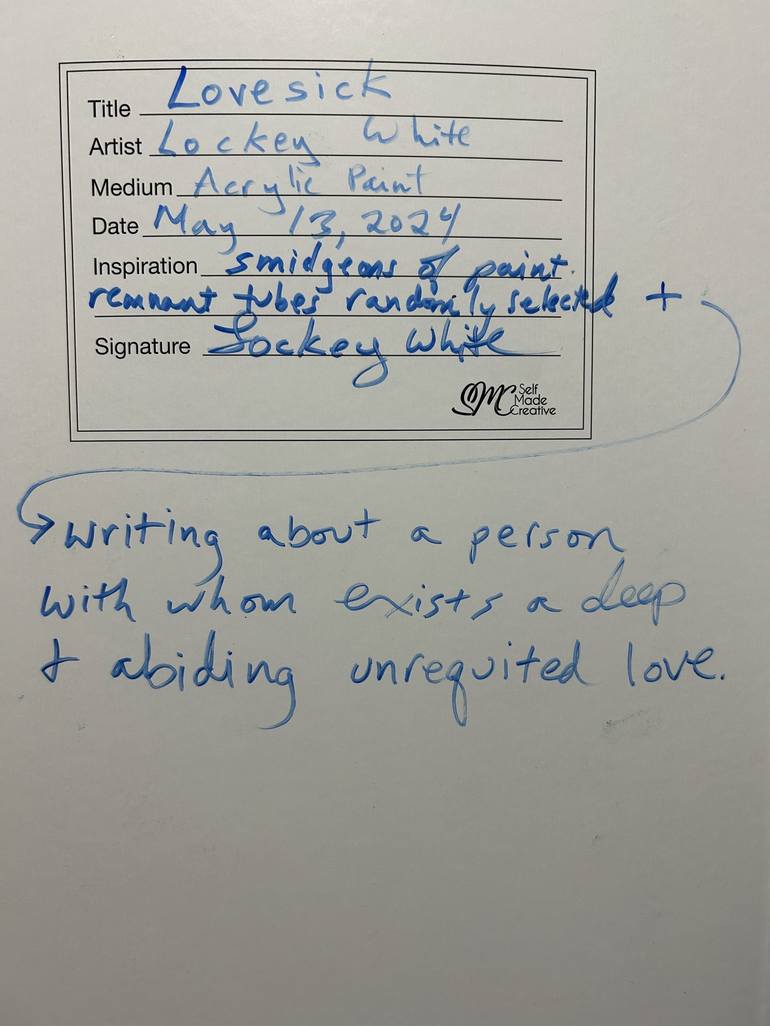 Title Lovesick
Artist Lockey White
Medium Acrylic Paint
Date May 13, 2024
Inspiration smidgeons of paint
remnant tubes randomly selected +
Signature Lockey White
SMC Self
Made
Creative
writing about a person
with whom exists a deep
+ abiding unrequited love.